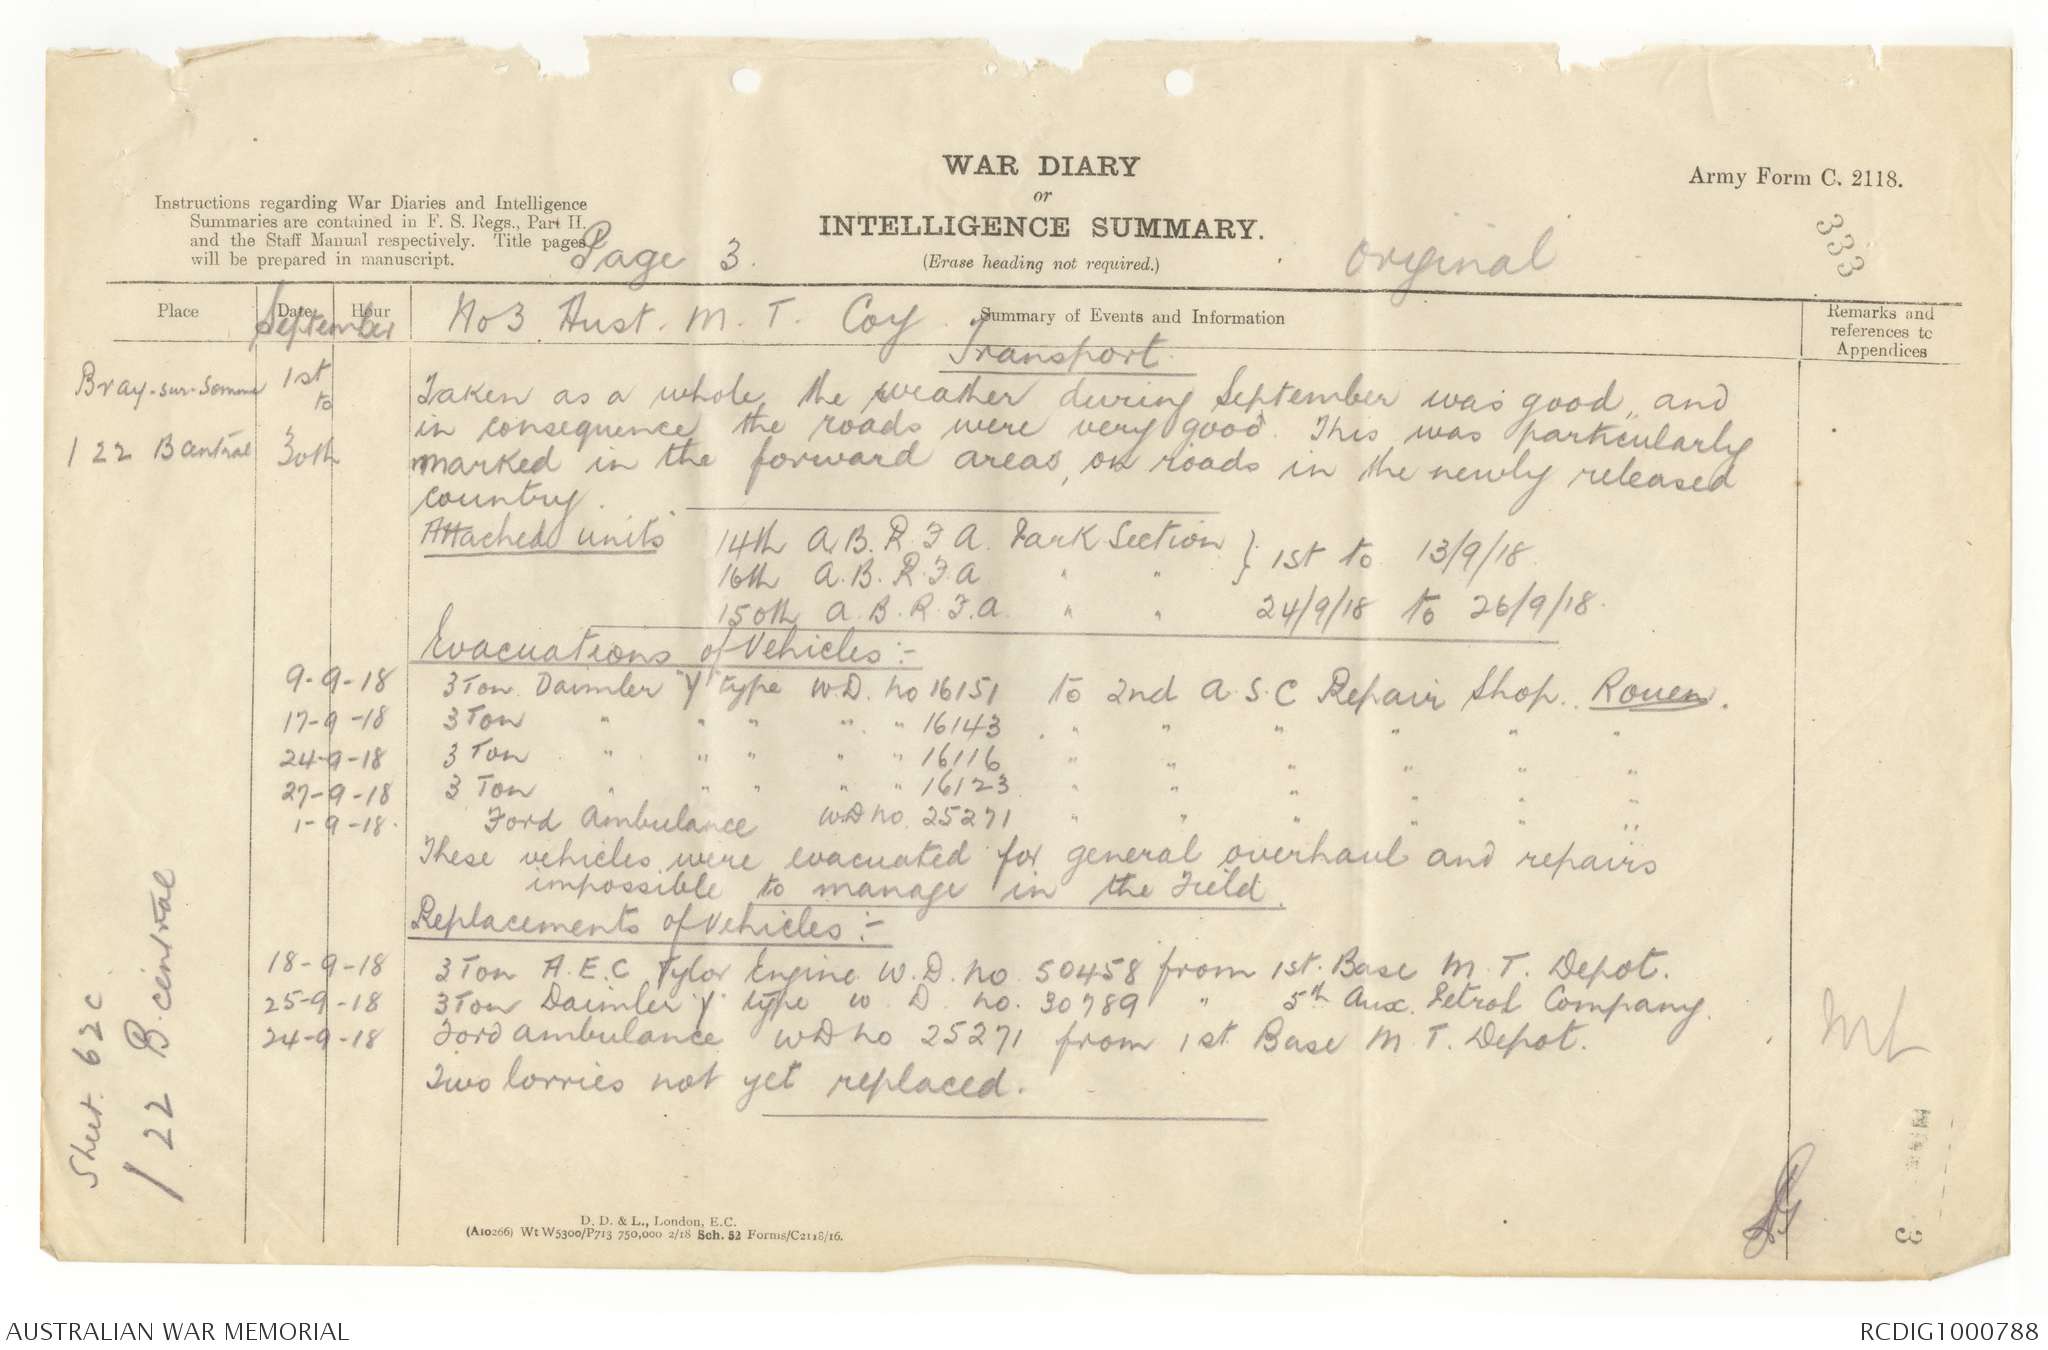 WAR DIARY
or
INTELLIGENCE SUMMARY.
(Erase heading not required.)
Army Form C. 2118.
Instructions regarding War Diaries and Intelligence
Summaries are contained in F. S. Regs., Part II.
and the Staff Manual respectively. Title pages
will be prepared in manuscript.
Page 3.
Original
333
Place
Date
Hour
Summary of Events and Information
Remarks and
references to
Appendices
September
No 3 Aust. M. T. Coy.
Transport
Bray-sur-Somme 1st
to
I 22 B Central 30th
Taken as a whole the weather during September was good, and
in consequence the roads were very good. This was particularly
marked in the forward areas, on roads in the newly released
country.
Attached units 14th A.B.R.F.A. Park Section } 1st to 13/9/18.
16th A.B.R.F.A. " "
150th A.B.R.F.A. " " 24/9/18 to 26/9/18.
Evacuations of Vehicles:-
9-9-18 3 Ton Daimler "Y" type W.D. no 16151 to 2nd A.S.C Repair Shop.. Rouen.
17-9-18 3 Ton " " " " " 16143 " " " " " "
24-9-18 3 Ton " " " " " 16116 " " " " " "
27-9-18 3 Ton " " " " " 16123 " " " " " "
1-9-18. Ford Ambulance W.D no. 25271 " " " " " "
These vehicles were evacuated for general overhaul and repairs
impossible to manage in the Field.
Replacements of Vehicles:-
18-9-18 3 Ton A.E.C Tylor Engine W.D. no 50458 from 1st. Base M.T. Depot.
25-9-18 3 Ton Daimler "Y" type W.D. no. 30789 " 5th Aux. Petrol Company.
24-9-18 Ford ambulance W D no 25271 from 1st Base M T. Depot.
Two lorries not yet replaced.
Sheet. 62c
I 22 B. central
D. D. & L., London, E.C.
(A10266) Wt W5300/P713 750,000 2/18 Sch. 52 Forms/C2118/16.
3
AUSTRALIAN WAR MEMORIAL
RCDIG1000788